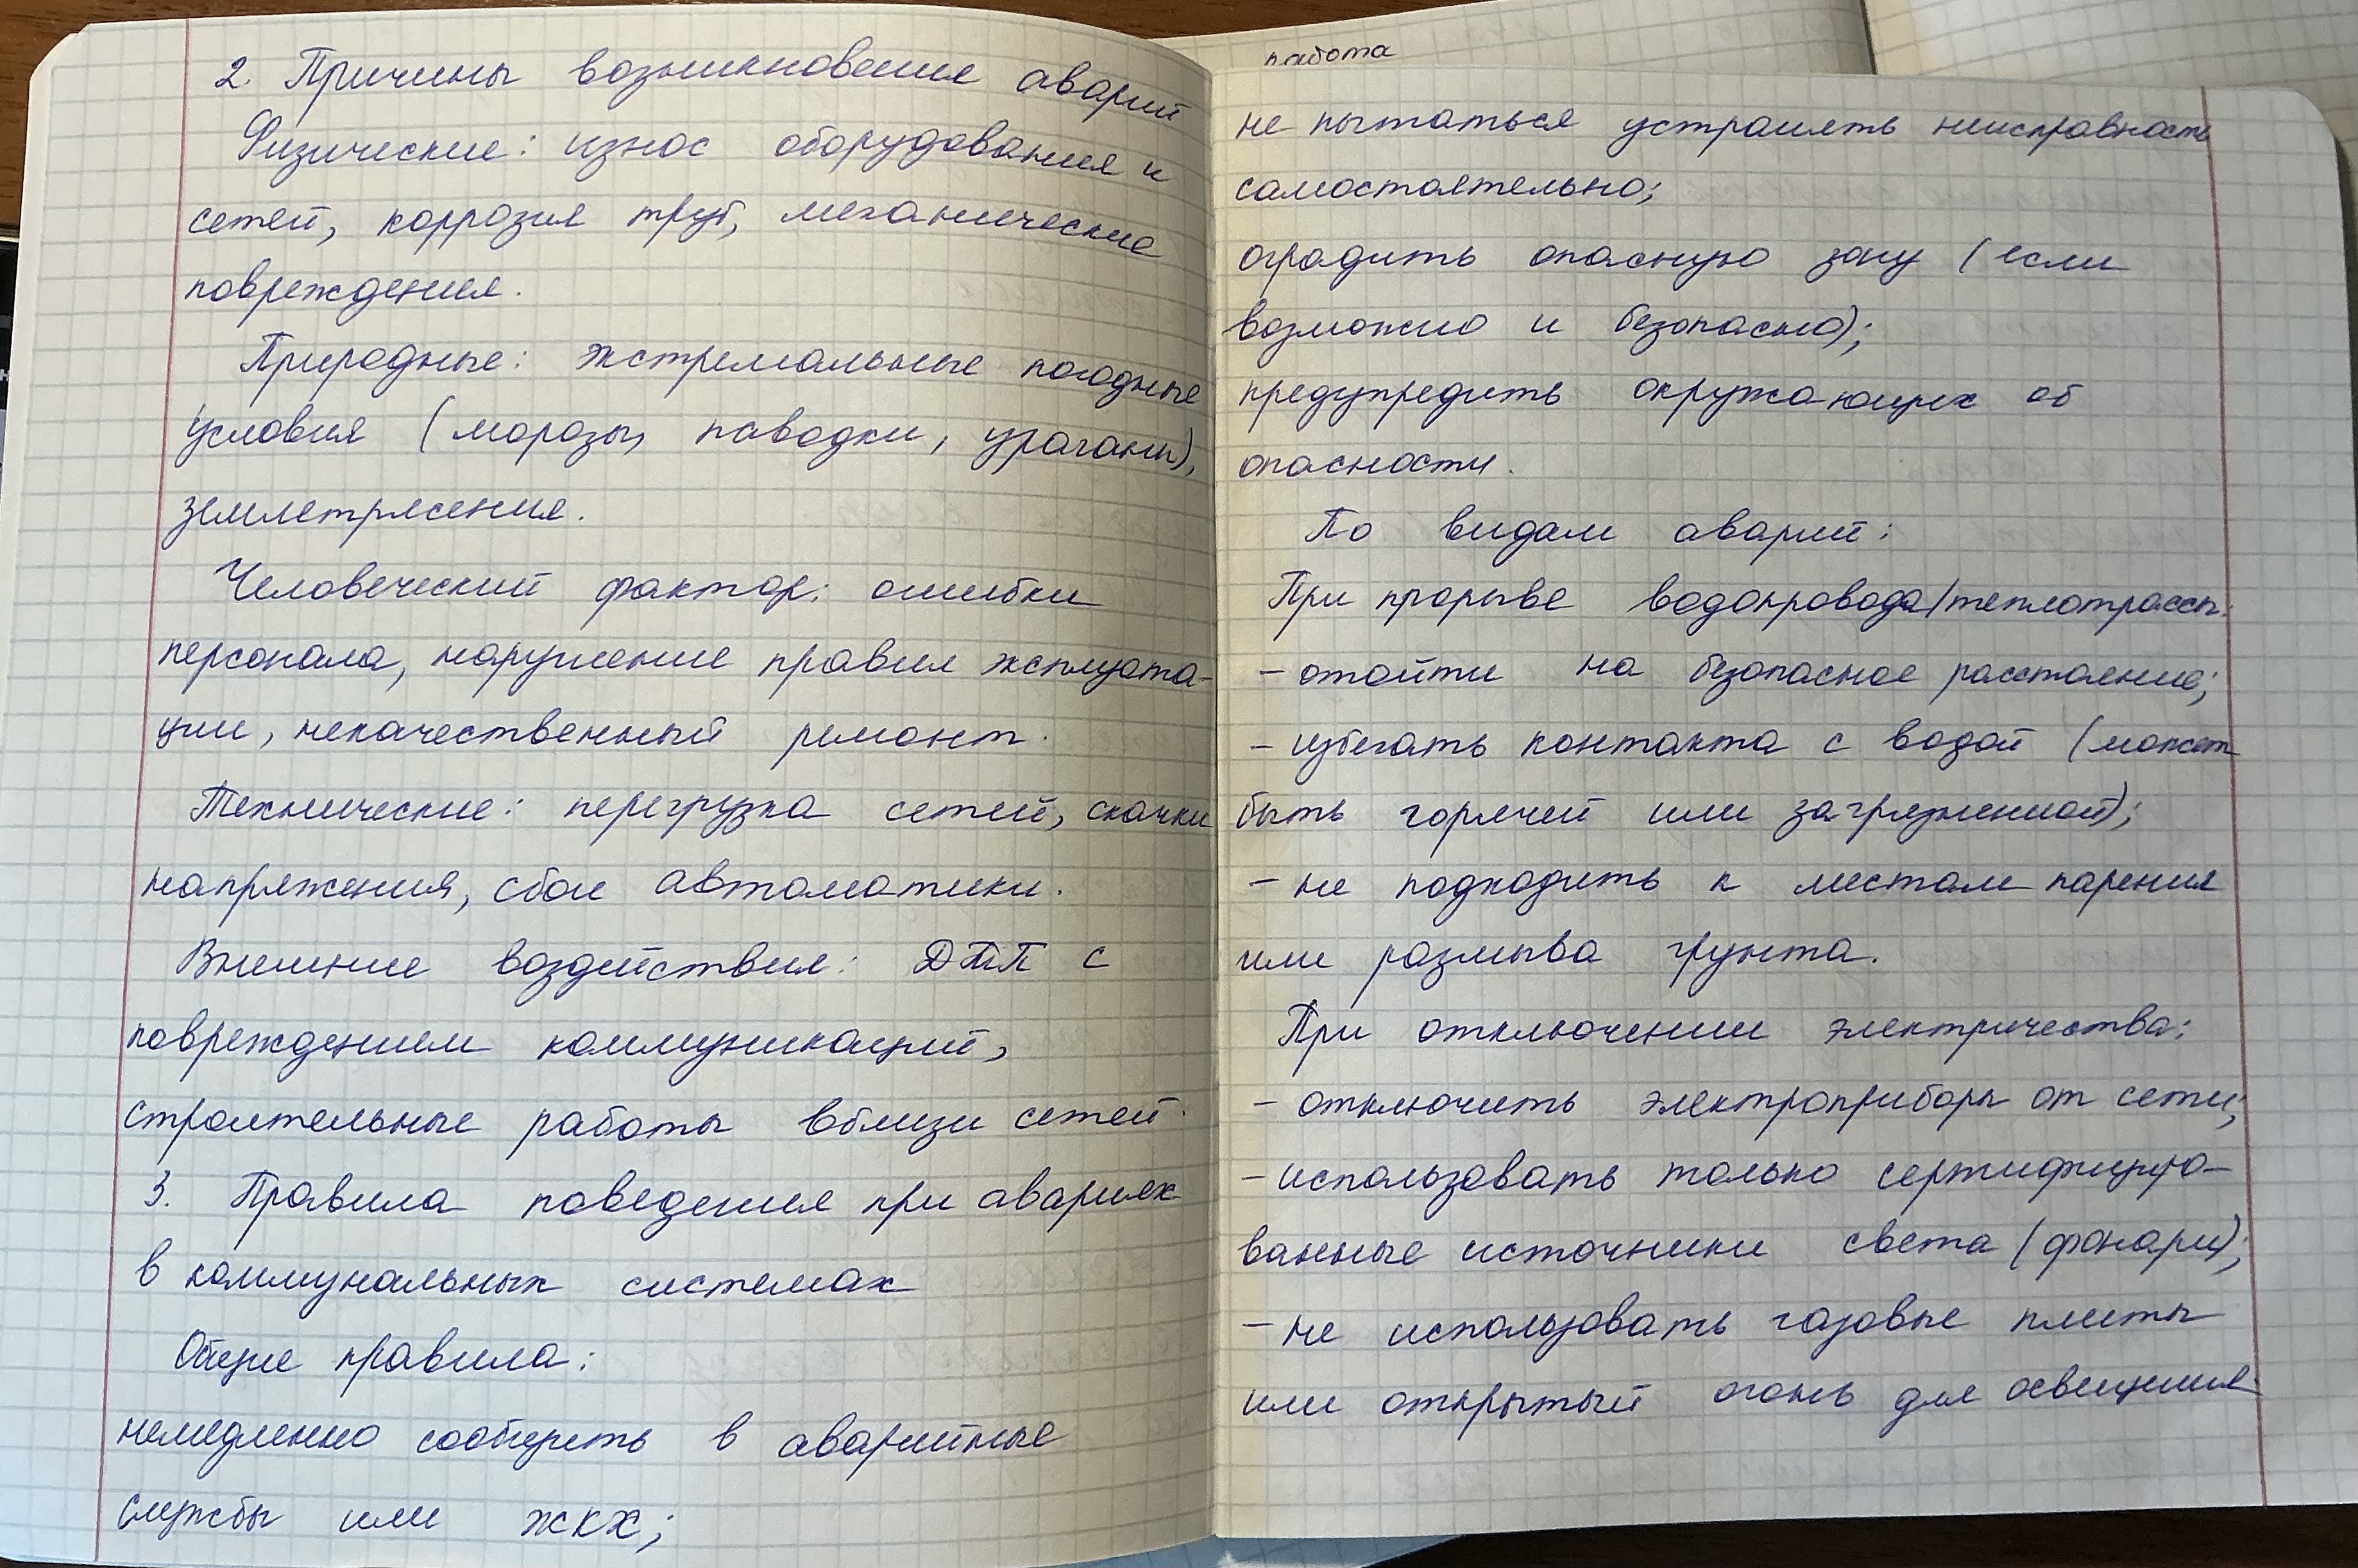 2. Причины возникновения аварий
Физические: износ оборудования и
сетей, коррозия труб, механические
повреждения.
Природные: экстремальные погодные
условия (морозы, паводки, ураганы),
землетрясения.
Человеческий фактор: ошибки
персонала, нарушение правил эксплуата-
ции, некачественный ремонт.
Технические: перегрузка сетей, скачки
напряжения, сбои автоматики.
Внешние воздействия: ДТП с
повреждением коммуникаций,
строительные работы вблизи сетей.
3. Правила поведения при авариях
в коммунальных системах
Общие правила:
немедленно сообщить в аварийные
службы или ЖКХ;
работа
не пытаться устранять неисправность
самостоятельно;
оградить опасную зону (если
возможно и безопасно);
предупредить окружающих об
опасности.
По видам аварий:
При прорыве водопровода/теплотрассы:
- отойти на безопасное расстояние;
- избегать контакта с водой (может
быть горячей или загрязненной);
- не подходить к местам парения
или размыва грунта.
При отключении электричества:
- отключить электроприборы от сети;
- использовать только сертифициро-
ванные источники света (фонари);
- не использовать газовые плиты
или открытый огонь для освещения.